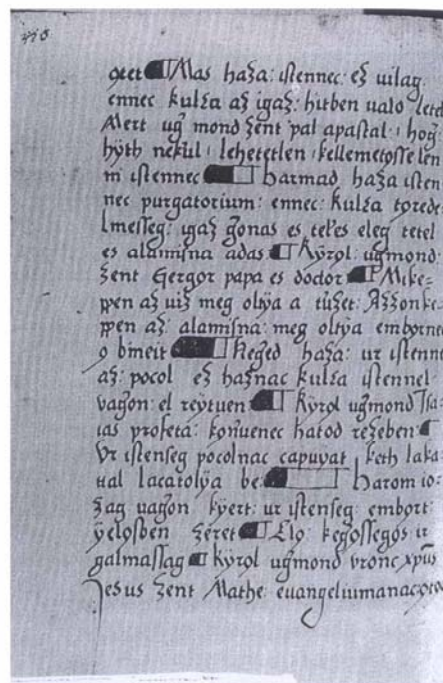 oztet Mas haʒa: istennec: eʒ uilag
ennec kulča aʒ igaʒ: hitben ualo
Mert uǵ mond ʒent pal apastal: hoǵ
hyth nekúl: lehetetlen: kellemetosse len
ni istennec harmad haʒa isten
nec purgatorium: ennec: kulča torede
lmesseg: igaʒ ǵonas es tel'es eleg tetel
es alamisna adas kÿrol uǵmond
ʒent Gergor papa es doctor Mike=
ppen aʒ uiʒ meg oltÿa a túʒet: Aʒʒonke
ppen aʒ: alamisna: meg oltÿa emborne
bineit Neged haʒa: ur istenne
aʒ: pocol eʒ haʒnac kulča istennel
vaǵon: el reÿtuen kÿrol uǵmond Isa
ias profeta: kon̄uenec hatod reʒeben:
Vr istenseg pocolnac capuÿat keth laka
ual lacatolÿa be: harom io:
ʒag uaǵon kÿert: ur istenseg: embort
ÿelosben ʒeret Elo: kegossegos ir
galmassag kÿrol uǵmond vronc xpūs
Jesus ʒent Mathe: euangeliumanac